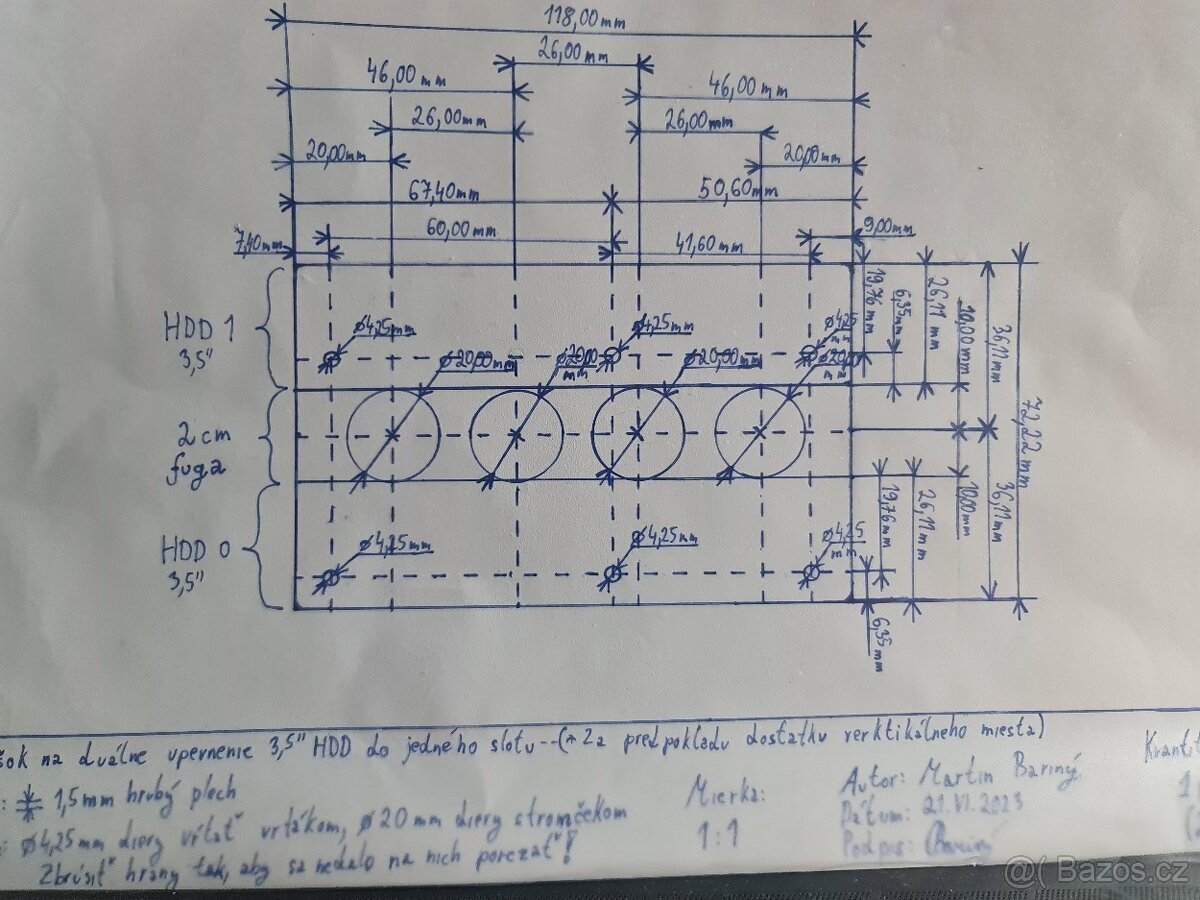 118,00mm
26,00mm
46,00mm
46,00mm
26,00mm
26,00mm
20,00mm
20,00mm
67,40mm
50,60mm
60,00mm
9,00mm
7,40mm
41,60mm
19,76mm
6,35mm
26,11mm
10,00mm
36,11mm
72,22mm
HDD 1
3,5"
ø4,25mm
ø4,25mm
ø4,25
mm
ø20,00mm
ø20,00
mm
ø20,00mm
mm
2 cm
fuga
HDD 0
3,5"
ø4,25mm
ø4,25mm
ø4,25
mm
19,76mm
26,11mm
10,00mm
36,11mm
6,35mm
na duálne upevnenie 3,5" HDD do jedného slotu--(*Za predpokladu dostatku vertikálneho miesta)
1,5mm hrubý plech
ø4,25mm diery vŕtať vrtákom, ø20mm diery stromčekom
Zbrúsiť hrany tak, aby sa nedalo na nich porezať!
Mierka:
1:1
Autor: Martin Bariny
Dátum: 21.VI.2023
Podpis: Bariny
@( Bazos.cz